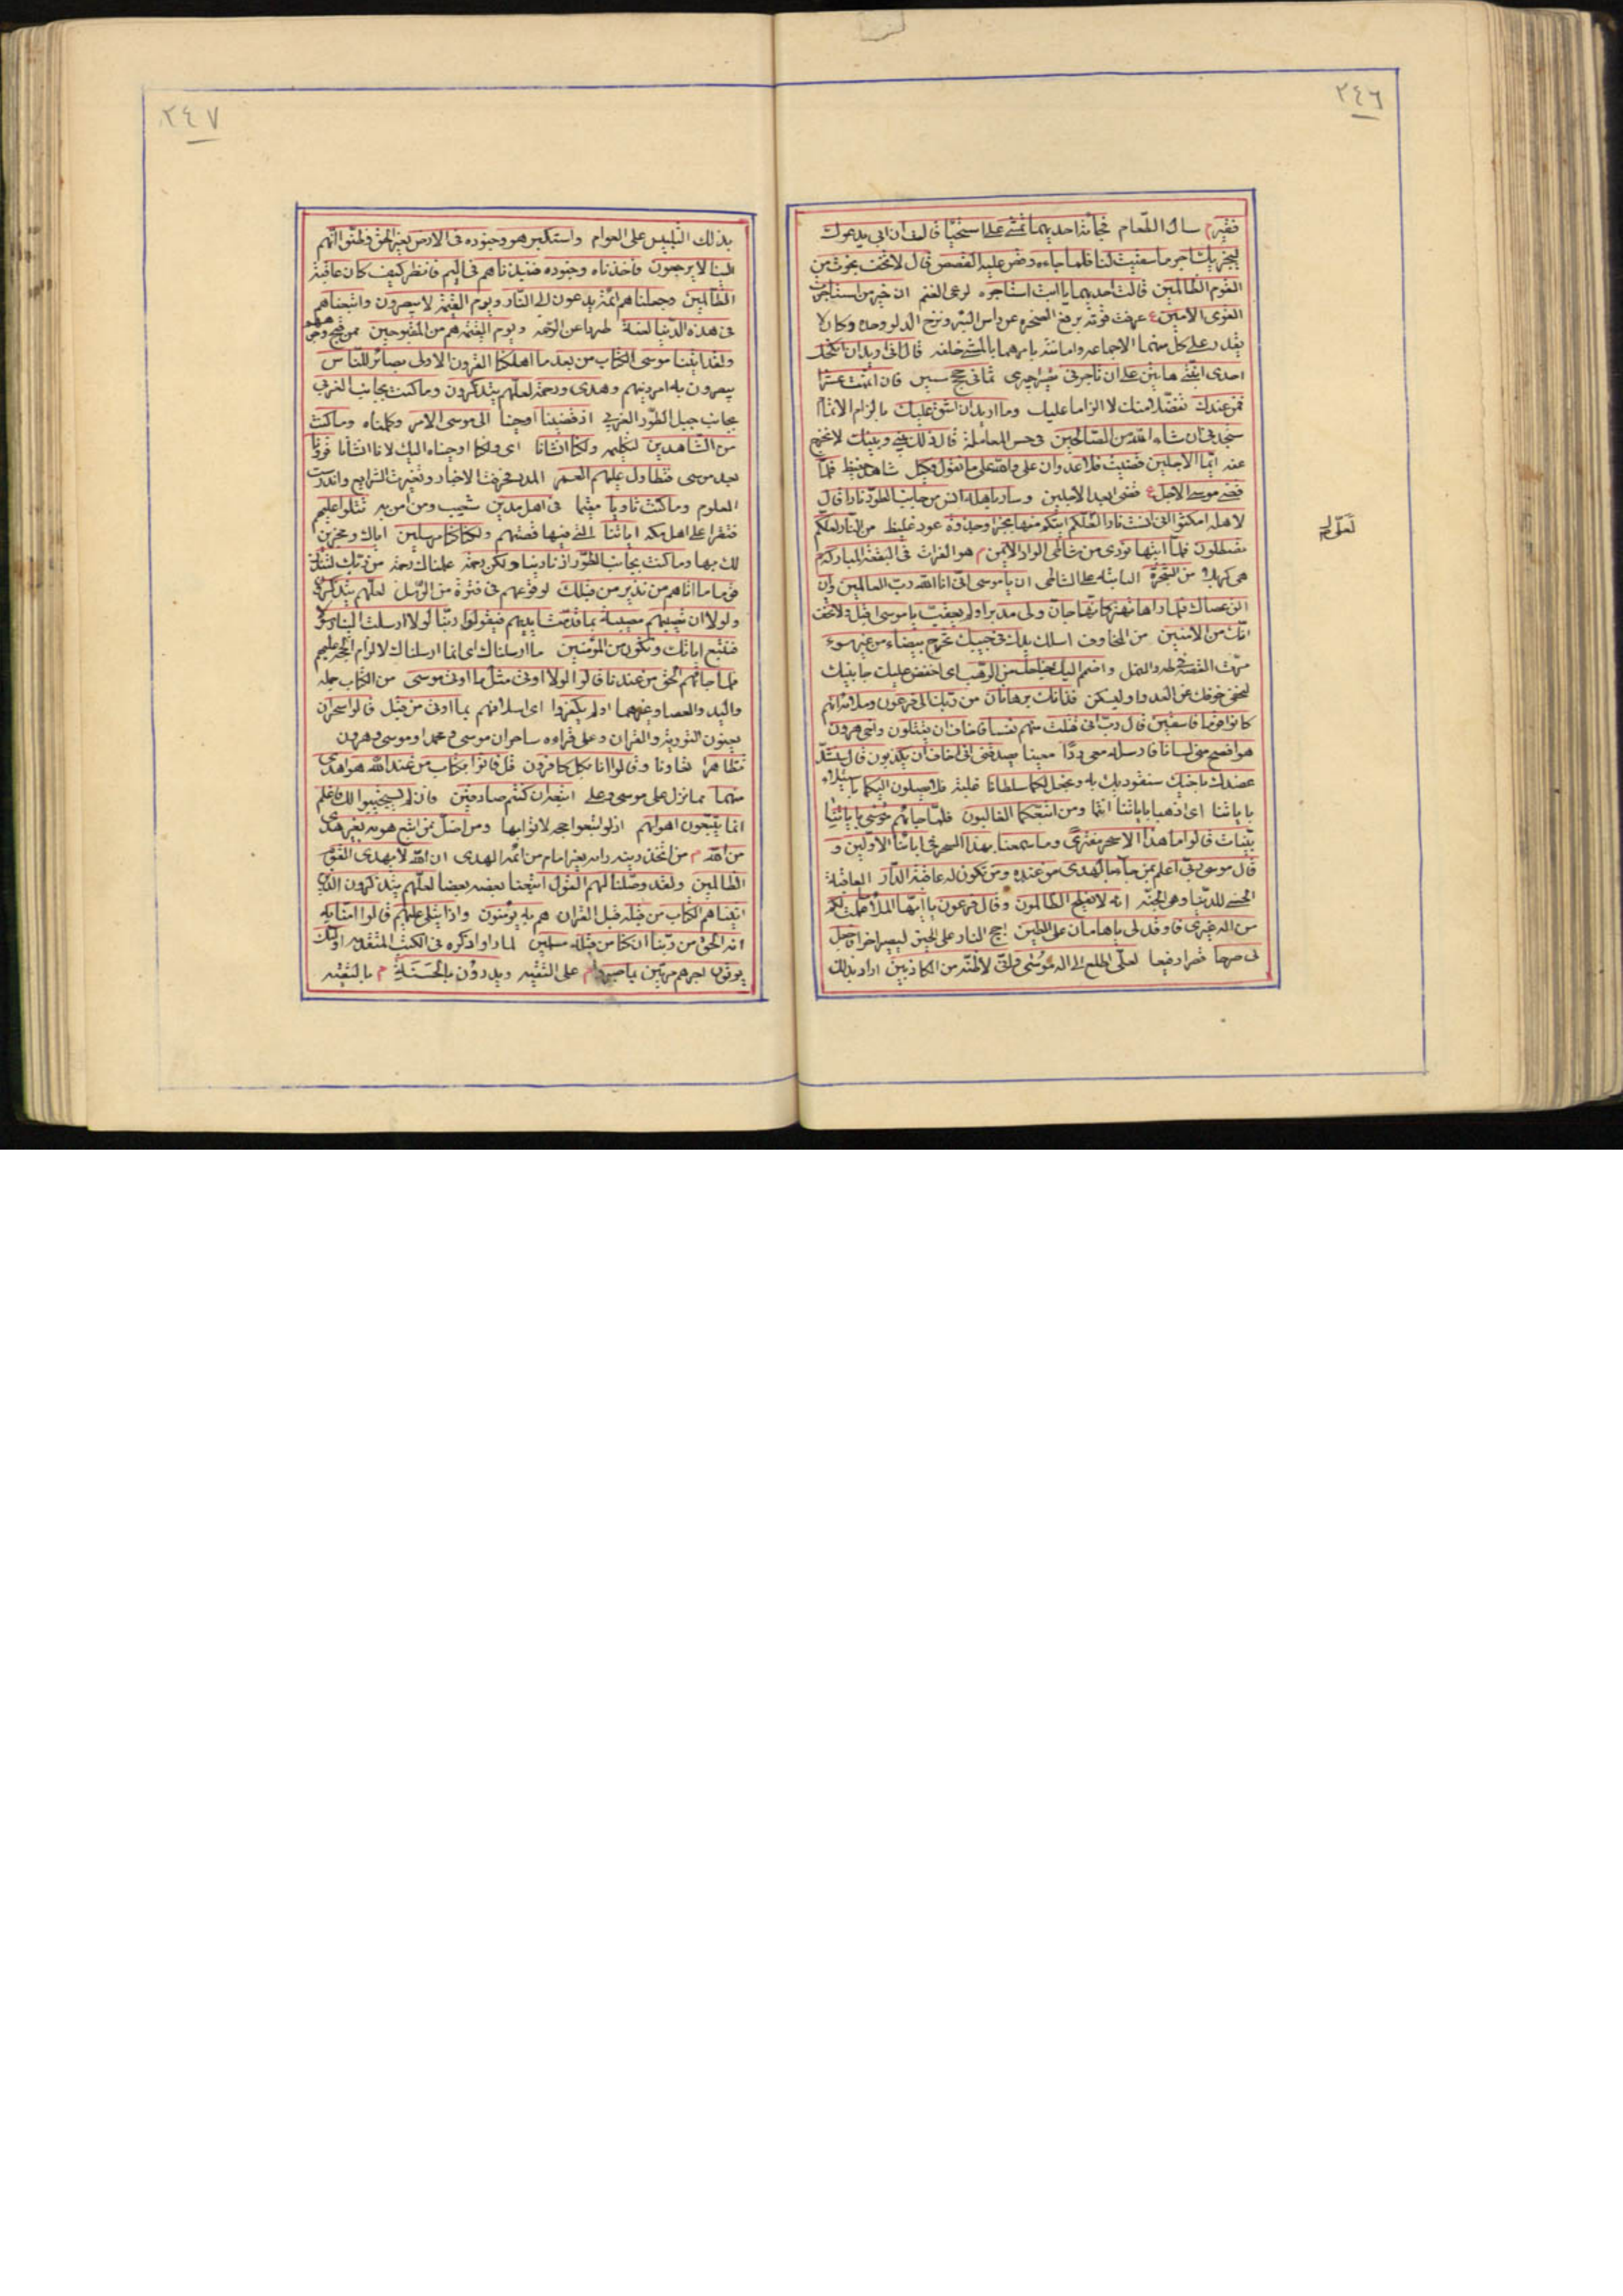 ٢٤٦
فقير م سال الطعام فجائته احديهما تمشى على استحياء قالت ان ابى يدعوك
ليجزيك اجر ما سقيت لنا فلما جاءه وقص عليه القصص قال لا تخف نجوت من
القوم الظالمين قالت احديهما يا ابت استاجره لرعى الغنم ان خير من استاجرت
القوى الامين ع عرفت قوته برفع الصخره عن راس البئر ونزح الدلو وحده وكان لا
يقدر على كل منهما الا جماعه وامانته بامرهما بالمشى خلفه قال انى اريد ان انكحك
احدى ابنتى هاتين على ان تاجرنى ثمانى حجج سنين فان اتممت عشرا
فمن عندك تفضلا منك لا الزاما عليك وما اريد ان اشق عليك بالزام الاتمام
ستجدنى ان شاء الله من الصالحين فى حسن المعاملة قال ذلك بينى وبينك لا نخرج
عنه ايما الاجلين قضيت فلا عدوان على والله على ما نقول وكيل شاهد حفيظ فلما
قضى موسى الاجل ع قضى ابعد الاجلين وسار باهله انس من جانب الطور نارا قال
لاهله امكثوا انى انست نارا لعلى اتيكم منها بخبر او جذوة عود غليظ من النار لعلكم
لعلى
تصطلون فلما اتيها نودى من شاطى الواد الايمن م هو الفرات فى البقعة المباركة م
هى كربلا من الشجرة النابته على الشاطى ان يا موسى انى انا الله رب العالمين وان
الق عصاك فلما راها تهتز كانها جان ولى مدبرا ولم يعقب يا موسى اقبل ولا تخف
انك من الامنين من المخاوف اسلك يدك فى جيبك تخرج بيضاء من غير سوء
مرت القصة فى طه والنمل واضمم اليك جناحك من الرهب اى اخفض عليك جانبيك
ليخفى خوفك عن العدو اوليسكن فذانك برهانان من ربك الى فرعون وملائه انهم
كانوا قوما فاسقين قال رب انى قتلت منهم نفسا فاخاف ان يقتلون واخى هرون
هو افصح منى لسانا فارسله معى ردءا معينا يصدقنى انى اخاف ان يكذبون قال سنشد
عضدك باخيك سنقويك به ونجعل لكما سلطانا غلبة فلا يصلون اليكما باستيلاء
باياتنا اى اذهبا باياتنا انتما ومن اتبعكما الغالبون فلما جائهم موسى باياتنا
بينات قالوا ما هذا الا سحر مفترى وما سمعنا بهذا السحر فى ابائنا الاولين و
قال موسى ربى اعلم بمن جاء بالهدى من عنده ومن تكون له عاقبة الدار العاقبة
الحسنى للدنيا وهى الجنه انه لا يفلح الظالمون وقال فرعون يا ايها الملا ما علمت لكم
من اله غيرى فاوقد لى يا هامان على الطين اجج النار على اللبن ليصير اجرا فاجعل
لى صرحا قصرا رفيعا لعلى اطلع الى اله موسى وانى لاظنه من الكاذبين اراد بذلك
٢٤٧
بذلك التلبيس على العوام واستكبر هو وجنوده فى الارض بغير الحق وظنوا انهم
الينا لا يرجعون فاخذناه وجنوده فنبذناهم فى اليم فانظر كيف كان عاقبة
الظالمين وجعلناهم ائمة يدعون الى النار ويوم القيمة لا ينصرون واتبعناهم
فى هذه الدنيا لعنة طردا عن الرحمة ويوم القيمة هم من المقبوحين ممن قبح وجوههم
ولقد اتينا موسى الكتاب من بعد ما اهلكنا القرون الاولى بصائر للناس
يبصرون به امر دينهم وهدى ورحمة لعلهم يتذكرون وما كنت بجانب الغربى
بجانب جبل الطور الغربى اذ قضينا اوحينا الى موسى الامر وكلمناه وما كنت
من الشاهدين لتكليمه ولكنا انشانا اى ولكنا اوحيناه اليك لانا انشانا قرونا
بعد موسى فتطاول عليهم العمر المدد فحرفت الاخبار وتغيرت الشرايع واندرست
العلوم وما كنت ثاويا مقيما فى اهل مدين شعيب ومن امن به تتلوا عليهم
فتقرا على اهل مكه اياتنا التى فيها قصتهم ولكنا كنا مرسلين اياك ومخبرين
لك بها وما كنت بجانب الطور اذ نادينا ولكن رحمة علمناك رحمة من ربك لتنذر
قوما ما اتاهم من نذير من قبلك لوقوعهم فى فترة من الرسل لعلهم يتذكرون
ولولا ان تصيبهم مصيبة بما قدمت ايديهم فيقولوا ربنا لولا ارسلت الينا رسولا
فنتبع اياتك ونكون من المؤمنين ما ارسلناك اى انما ارسلناك لالزام الحجة عليهم
فلما جائهم الحق من عندنا قالوا لولا اوتى مثل ما اوتى موسى من الكتاب جمله
واليد والعصا وغيرهما اولم يكفروا اى اسلافهم بما اوتى من قبل قالوا سحران
يعنون التورية والقران وعلى قراءه ساحران موسى ومحمد او موسى وهرون
تظاهرا تعاونا وقالوا انا بكل كافرون قل فاتوا بكتاب من عند الله هو اهدى
منهما مما نزل على موسى وعلى اتبعه ان كنتم صادقين فان لم يستجيبوا لك فاعلم
انما يتبعون اهوائهم اذ لو اتبعوا حجه لاتوا بها ومن اضل ممن اتبع هويه بغير هدى
من الله م من اتخذ دينه رايه بغير امام من ائمة الهدى ان الله لا يهدى القوم
الظالمين ولقد وصلنا لهم القول اتبعنا بعضه بعضا لعلهم يتذكرون الذين
اتيناهم الكتاب من قبله قبل القران هم به يؤمنون واذا يتلى عليهم قالوا امنا به
انه الحق من ربنا انا كنا من قبله مسلمين لما راوا ذكره فى الكتب المتقدمه اولئك
يؤتون اجرهم مرتين بما صبروا م على التقيه ويدرؤن بالحسنة م بالتقيه